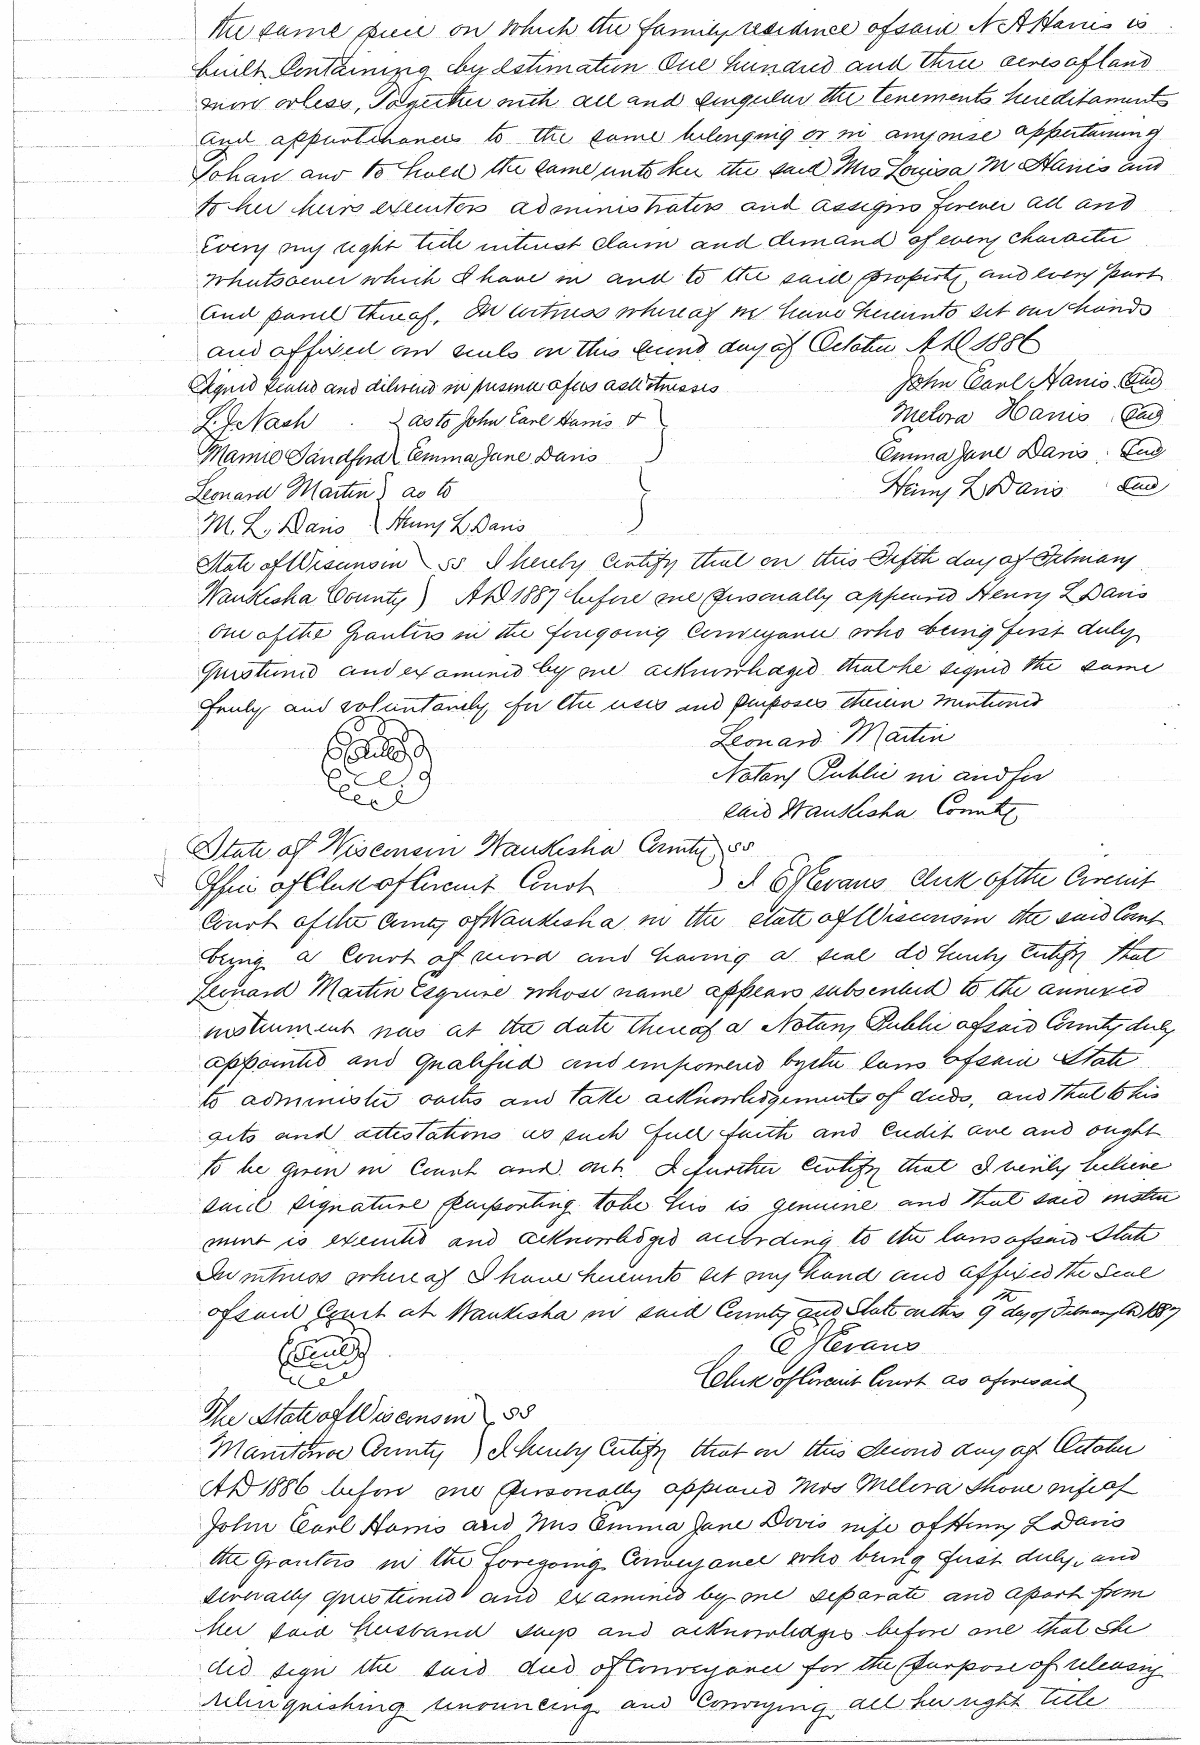 the same piece on which the family residence of said N A Harris is
built Containing by estimation One hundred and three acres of land
more or less, Together with all and singular the tenements hereditaments
and appurtenances to the same belonging or in anywise appertaining
To have and to hold the same unto her the said Mrs Louisa M Harris and
to her heirs executors administrators and assigns forever all and
Every my right title interest claim and demand of every character
whatsoever which I have in and to the said property and every part
and parcel thereof. In witness whereof we have hereunto set our hands
and affixed our seals on this second day of October A D 1886
Signed sealed and delivered in presence of us as witnesses
John Earl Harris Seal
L. J. Nash } as to John Earl Harris &
Melora Harris Seal
Mamie Sandford } Emma Jane Davis
Emma Jane Davis Seal
Leonard Martin } as to
Henry L Davis Seal
M. L. Davis } Henry L Davis
State of Wisconsin } SS I hereby Certify that on this Fifth day of February
Waukesha County } A D 1887 before me personally appeared Henry L Davis
one of the Grantors in the foregoing Conveyance who being first duly
questioned and examined by me acknowledged that he signed the same
freely and voluntarily for the uses and purposes therein mentioned
Seal
Leonard Martin
Notary Public in and for
said Waukesha County
State of Wisconsin Waukesha County } SS
Office of Clerk of Circuit Court } I Evans Clerk of the Circuit
Court of the County of Waukesha in the state of Wisconsin the said Court
being a Court of record and having a seal do hereby Certify that
Leonard Martin Esquire whose name appears subscribed to the annexed
instrument was at the date thereof a Notary Public of said County duly
appointed and qualified and empowered by the laws of said State
to administer oaths and take acknowledgements of deeds, and that to his
acts and attestations as such full faith and credit are and ought
to be given in Court and out. I further Certify that I verily believe
said signature purporting to be his is genuine and that said instru
ment is executed and acknowledged according to the laws of said State
In witness whereof I have hereunto set my hand and affixed the Seal
of said Court at Waukesha in said County and State on this 9th day of February A D 1887
Seal
Evans
Clerk of Circuit Court as aforesaid
The State of Wisconsin } SS
Manitowoc County } I hereby Certify that on this Second day of October
A D 1886 before me personally appeared Mrs Melora Shove wife of
John Earl Harris and Mrs Emma Jane Davis wife of Henry L Davis
the Grantors in the foregoing Conveyance who being first duly, and
severally questioned and examined by me separate and apart from
her said husband says and acknowledges before me that she
did sign the said deed of Conveyance for the purpose of releasing
relinquishing renouncing and Conveying all her right title